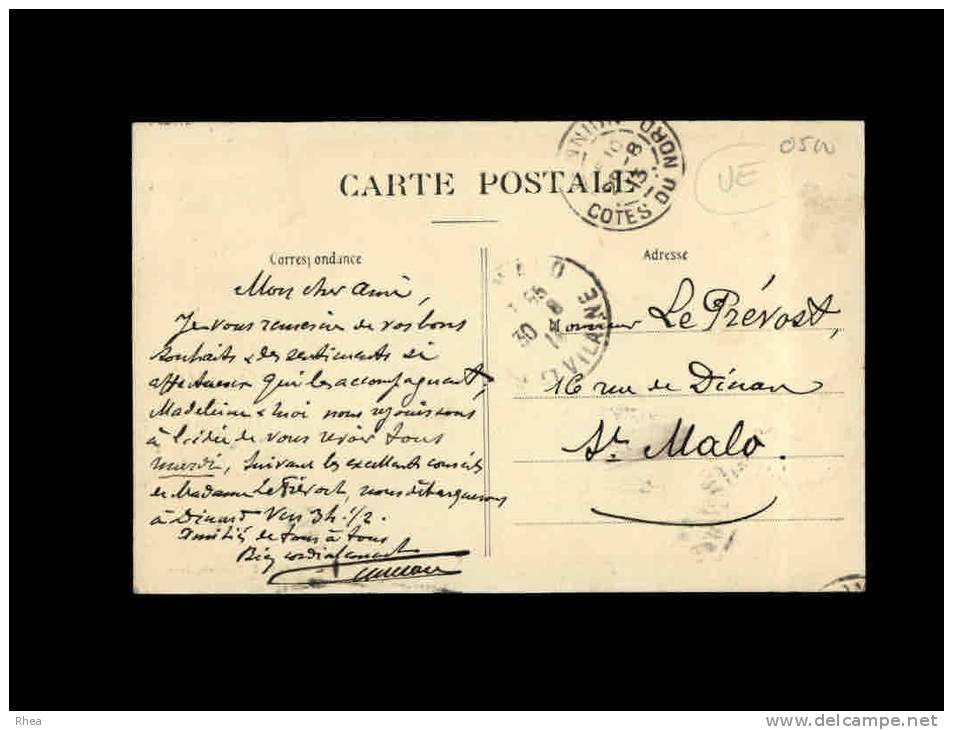 CARTE POSTALE
COTES DU NORD
29-8
13
VE
0500
Correspondance
Mon cher Ami,
Je vous remercie de vos bons
souhaits & des sentiments si
affectueux qui les accompagnent;
Madeleine & moi nous réjouissons
à l'idée de vous revoir tous
mardi, suivant les excellents conseils
de Madame Le Prévost, nous débarquerons
à Dinard vers 3h. 1/2.
Amitiés de tous à tous
Bien cordialement
Adresse
30
8
VILAINE
Monsieur Le Prévost,
16 rue de Dinan
St. Malo.
Rhea
www.delcampe.net